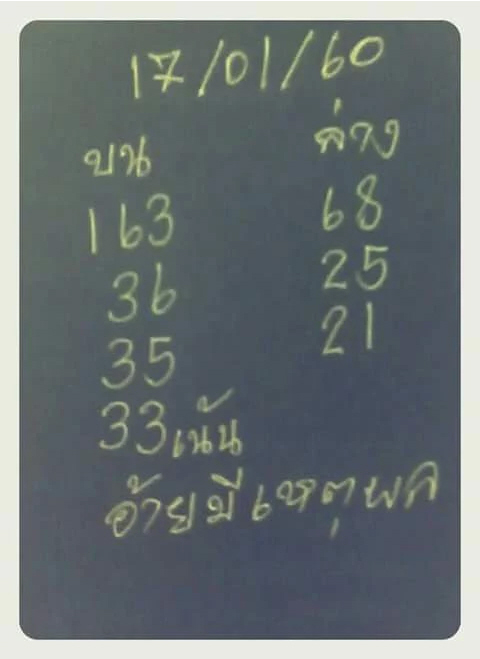 17/01/60
บน ล่าง
163 68
36 25
35 21
33เน้น
อ้ายมีเหตุผล